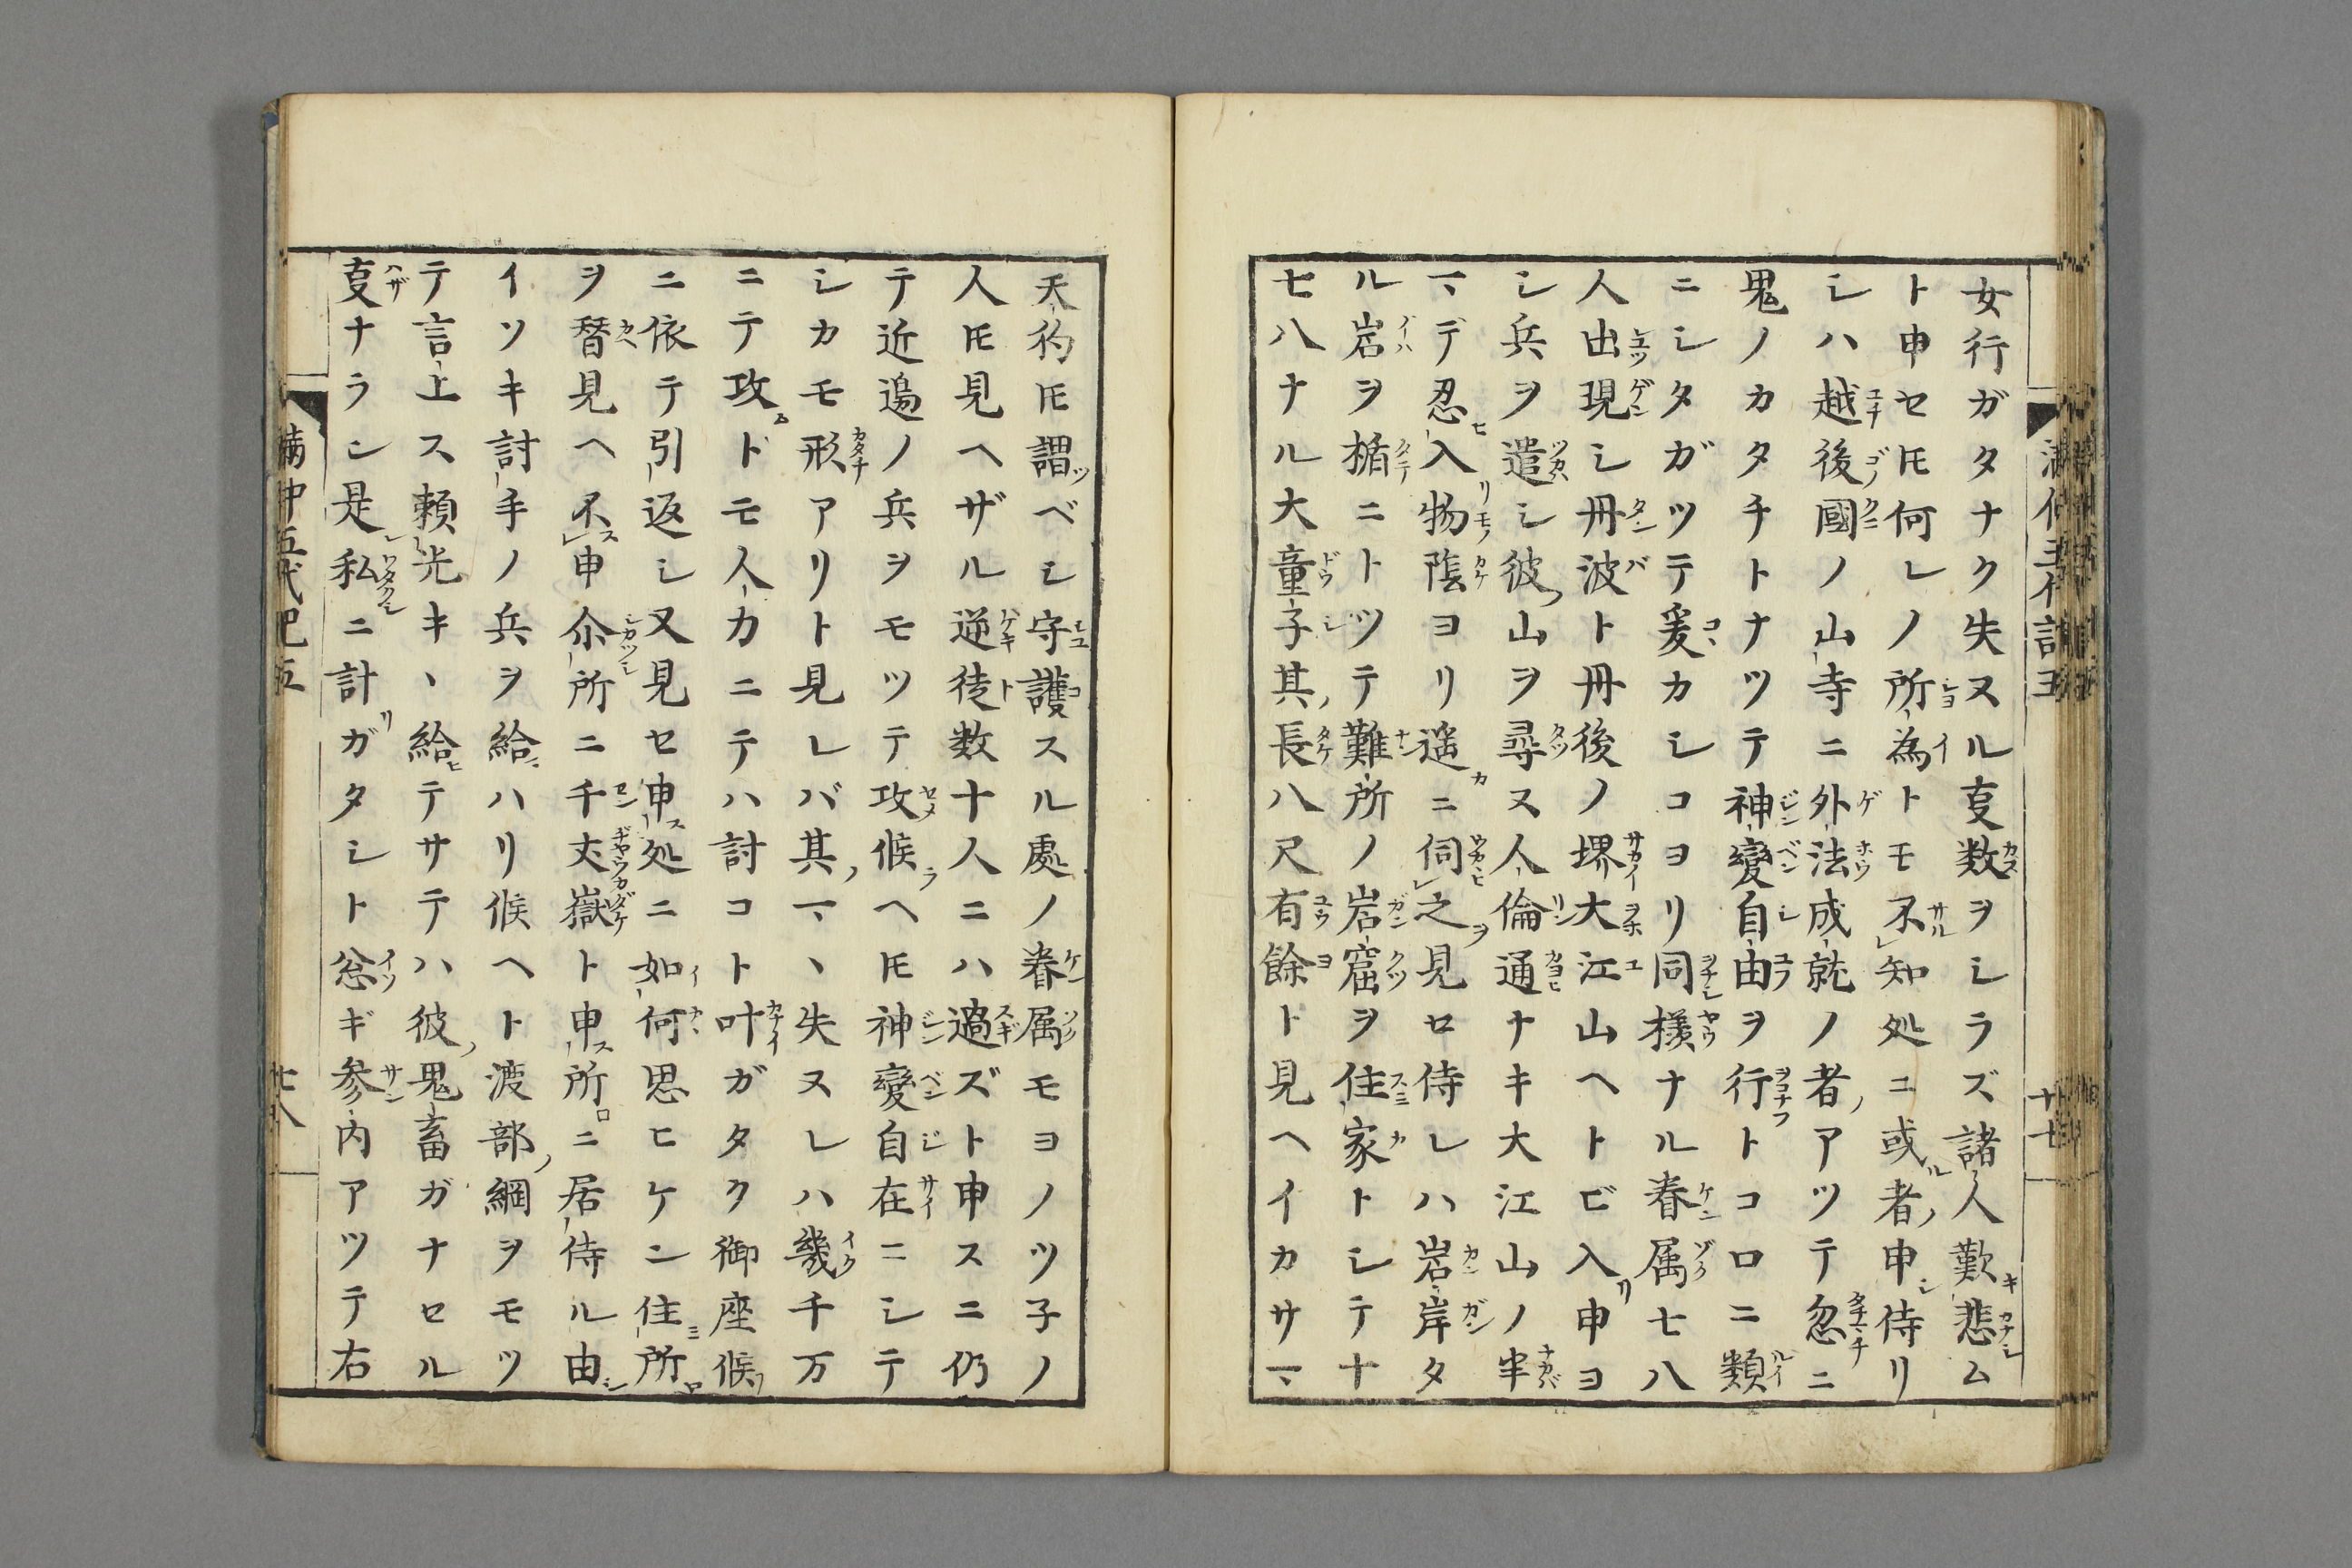 女行ガタナク失ヌル𫝆数ヲシラズ諸人歎悲ム
ト申セ𪜈何レノ所為トモ不知処ニ或者申侍リ
シハ越後國ノ山寺ニ外法成就ノ者アツテ忽ニ
鬼ノカタチトナツテ神變自由ヲ行トコロニ類
ニシタガツテ爰カシコヨリ同様ナル眷属七八
人出現シ丹波ト丹後ノ堺大江山ヘトビ入申ヨ
シ兵ヲ遣シ彼山ヲ尋ヌ人倫通ナキ大江山ノ半
マデ忍入物陰ヨリ遥ニ伺之見セ侍レハ岩岸タ
ル岩ヲ楯ニトツテ難所ノ岩窟ヲ住家トシテ十
七八ナル大童子其長八尺有餘ト見ヘイカサマ
天狗𪜈謂ベシ守護スル處ノ眷属モヨノツ子ノ
人𪜈見ヘザル逆徒数十人ニハ過ズト申スニ仍
テ近邊ノ兵ヲモツテ攻候ヘ𪜈神變自在ニシテ
シカモ形アリト見レバ其マヽ失ヌレハ幾千万
ニテ攻ドモ人力ニテハ討コト叶ガタク御座候
ニ依テ引返シ又見セ申処ニ如何思ヒケン住所
ヲ替見ヘ不申尒所ニ千丈嶽ト申所ニ居侍ル由
イソキ討手ノ兵ヲ給ハリ候ヘト渡部綱ヲモツ
テ言上ス頼光キヽ給テサテハ彼鬼畜ガナセル
𫝆ナラン是私ニ計ガタシト忩ギ参内アツテ右
満仲五代記五
廿八